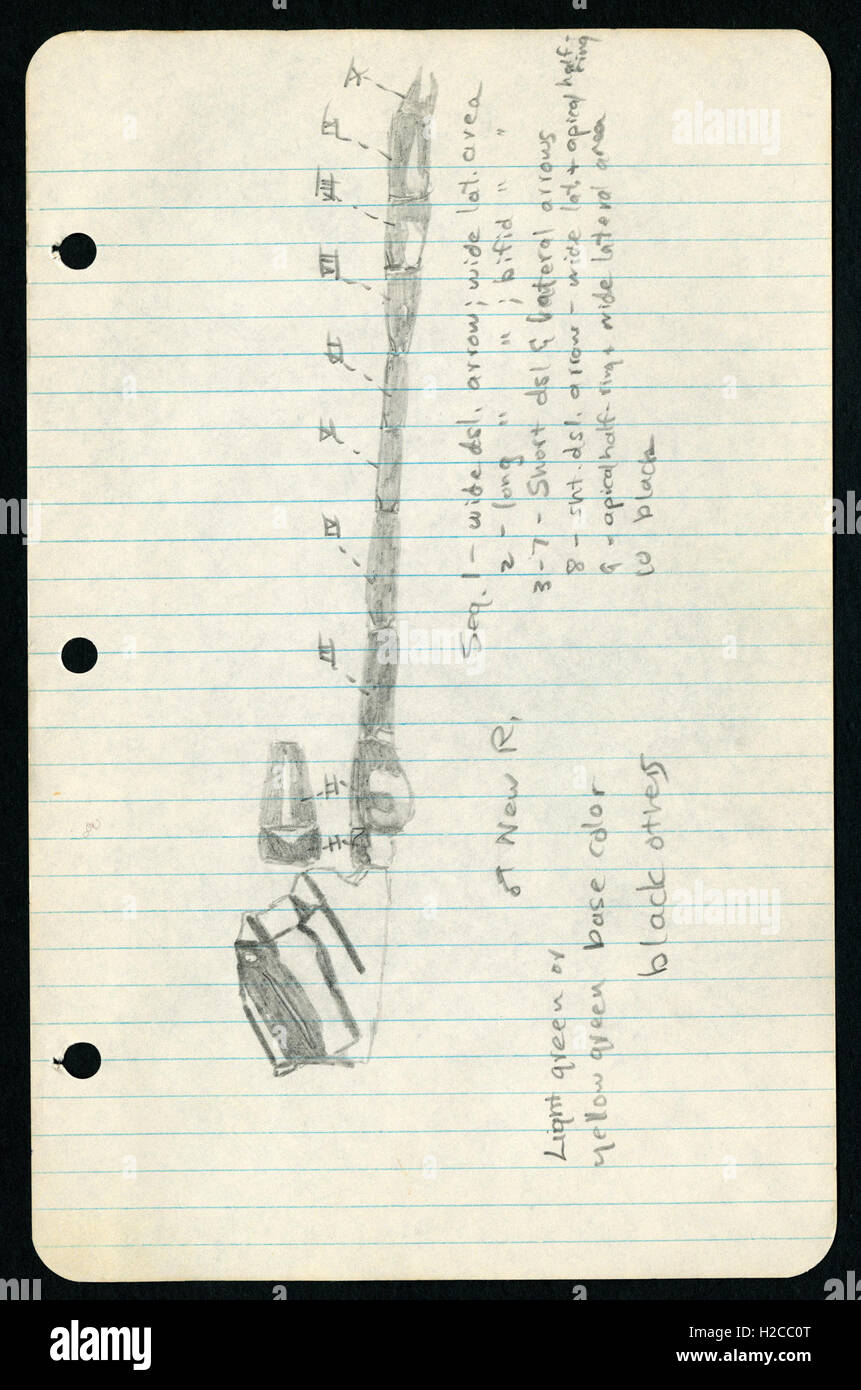 X
IX
VIII
VII
VI
V
IV
III
II
I
Seg. 1 - wide dsl. arrow; wide lat. area
2 - long " " ; bifid " "
3-7 - Short dsl & lateral arrows
8 - sht. dsl. arrow - wide lat. + apical half-ring
9 - apical half-ring + wide lateral area
10 black
♂ New R.
Light green or
yellow green base color
black others
alamy
alamy
alamy
alamy
Image ID: H2CC0T
www.alamy.com